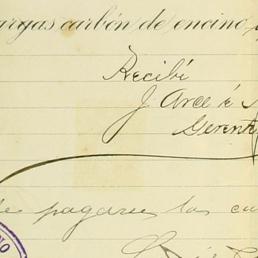 argas carbón de encino
Recibí
J. Arce é
Gerent
se pagaren las cu
NO